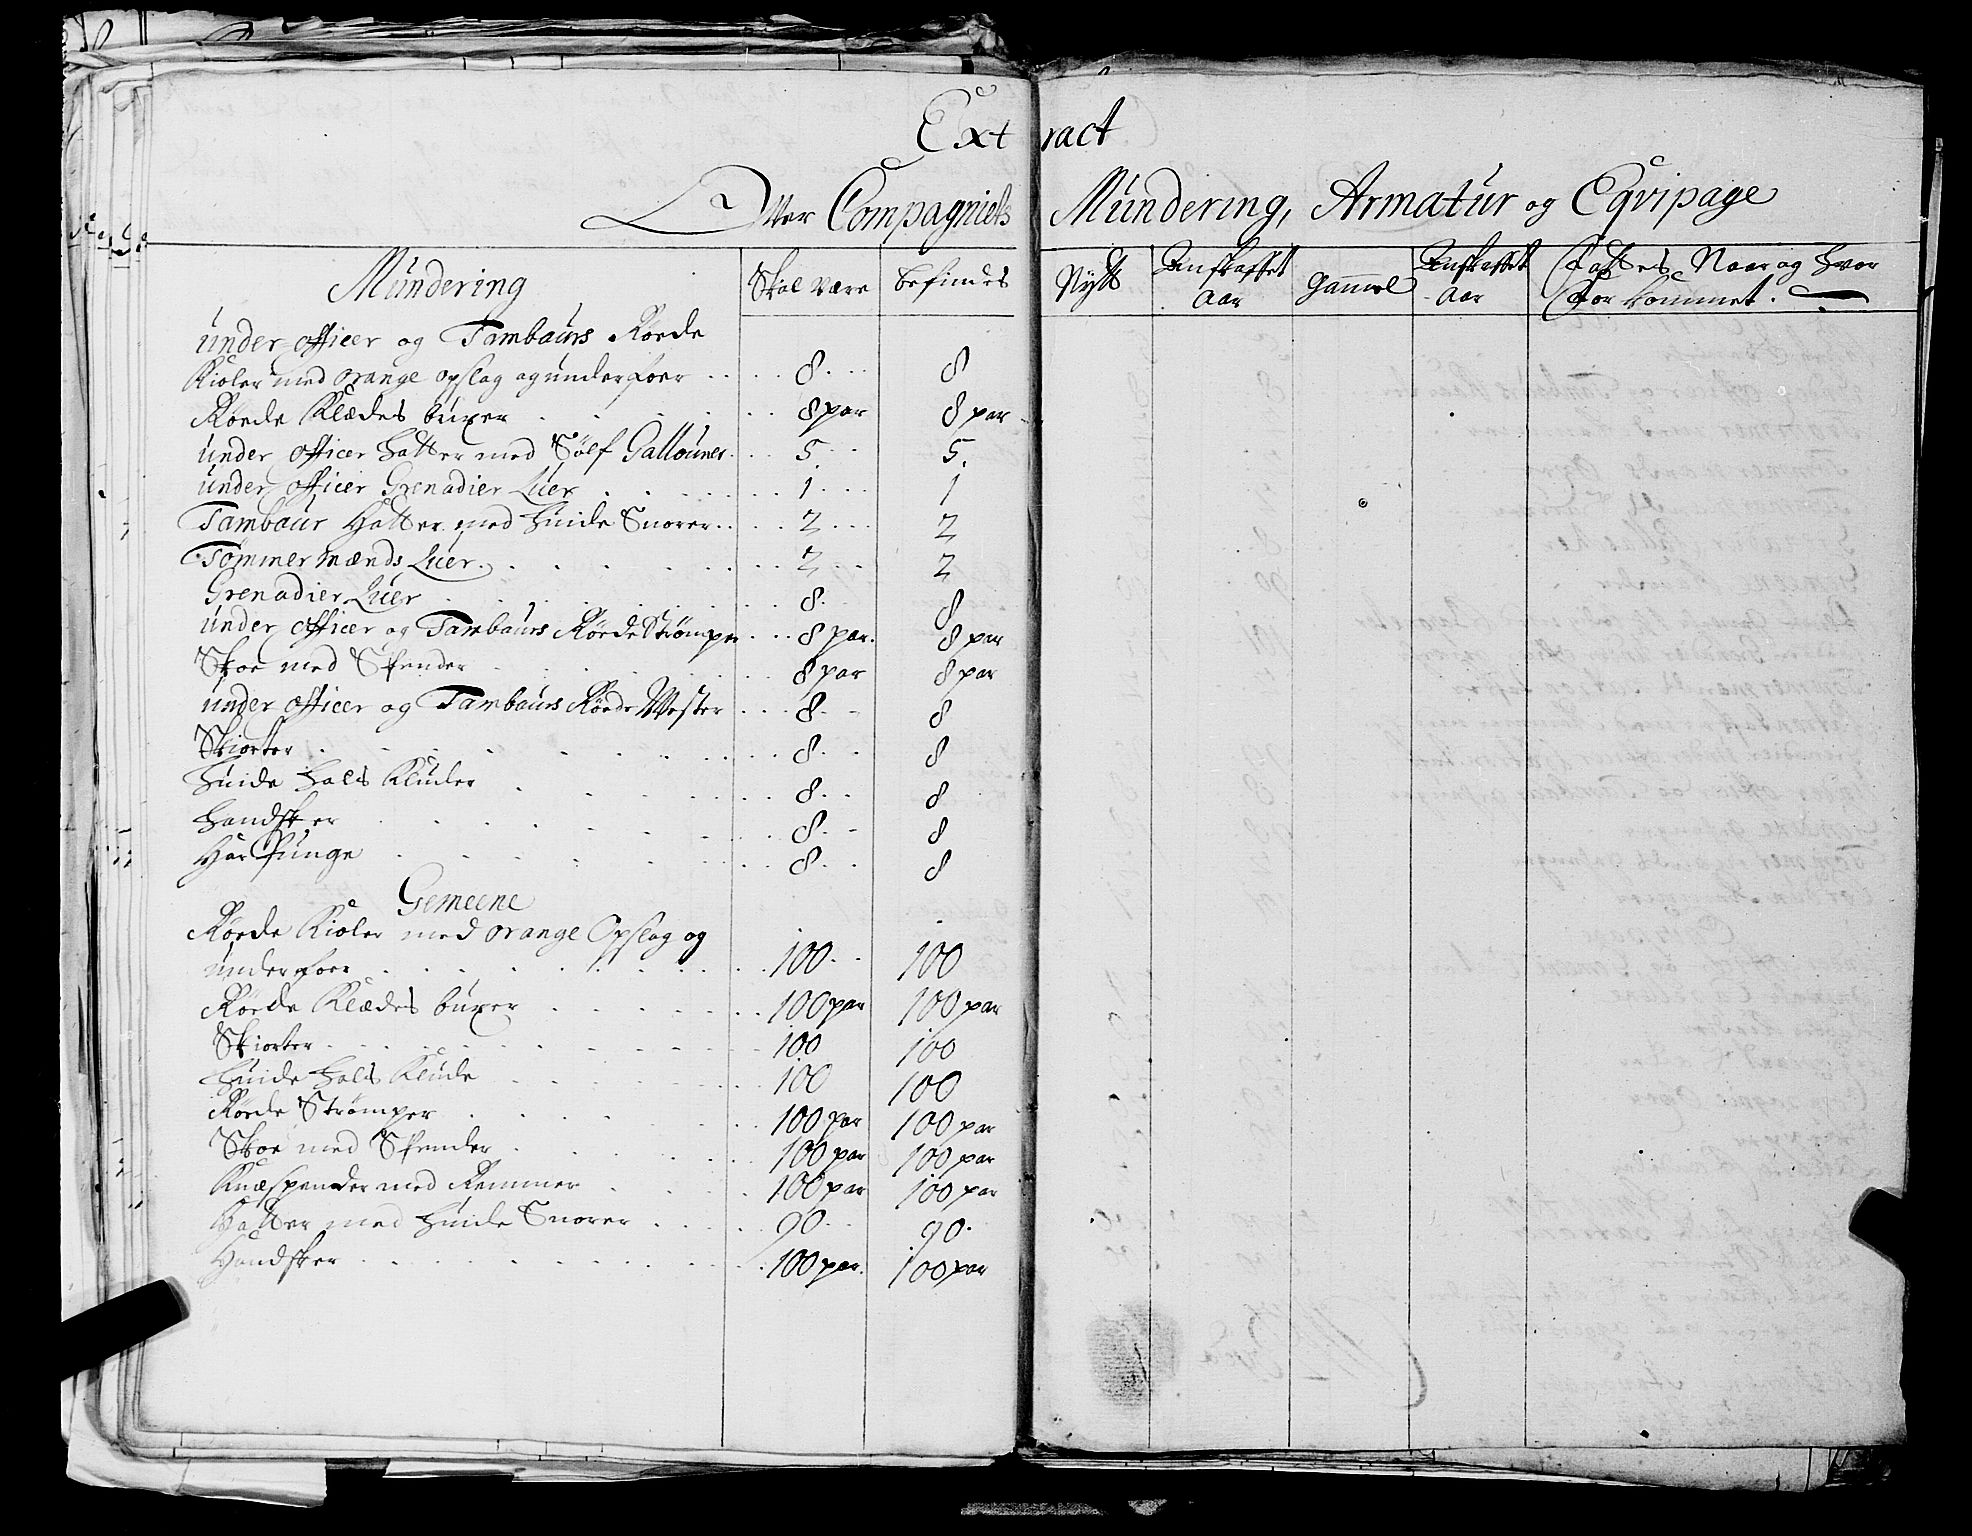 Extract
Over Compagniets Mundering, Armatur og Eqvipage
Mundering Skal være befindes Nytt Anskaffet Aar Gammel Anskaffet Aar Fattes Naar og hvor for kommet.
under officer og Tambaurs Røede
Kioler med orange opslag og underfoer 8 8
Røede Klædes buxer 8 par 8 par
under officer hatter med Sølf Gallouner 5 5.
under officer Grenadier Luer 1 1
Tambaur Hatter med huide Snorer 2 2
Tømmer Mænds Luer 2 2
Grenadier Luer 8 8
under officer og Tambaurs Røede Strømper 8 par. 8 par
Skoe med Spender 8 par 8 par
under officer og Tambaurs Røede Wester 8 8
Skiorter 8 8
huide hals Kluder 8 8
handsker 8 8
Har Punge 8 8
Gemeene
Røede Kioler med orange Opslag og
underfoer 100 100
Røede Klædes buxer 100 par 100 par
Skiorter 100 100
huide hals Klude 100 100
Røede Strømper 100 par 100 par
Skoe med Spender 100 par 100 par
Knæspender med Remmer 100 par 100 par
Hatter med huide Snorer 90 90.
Handsker 100 par. 100 par